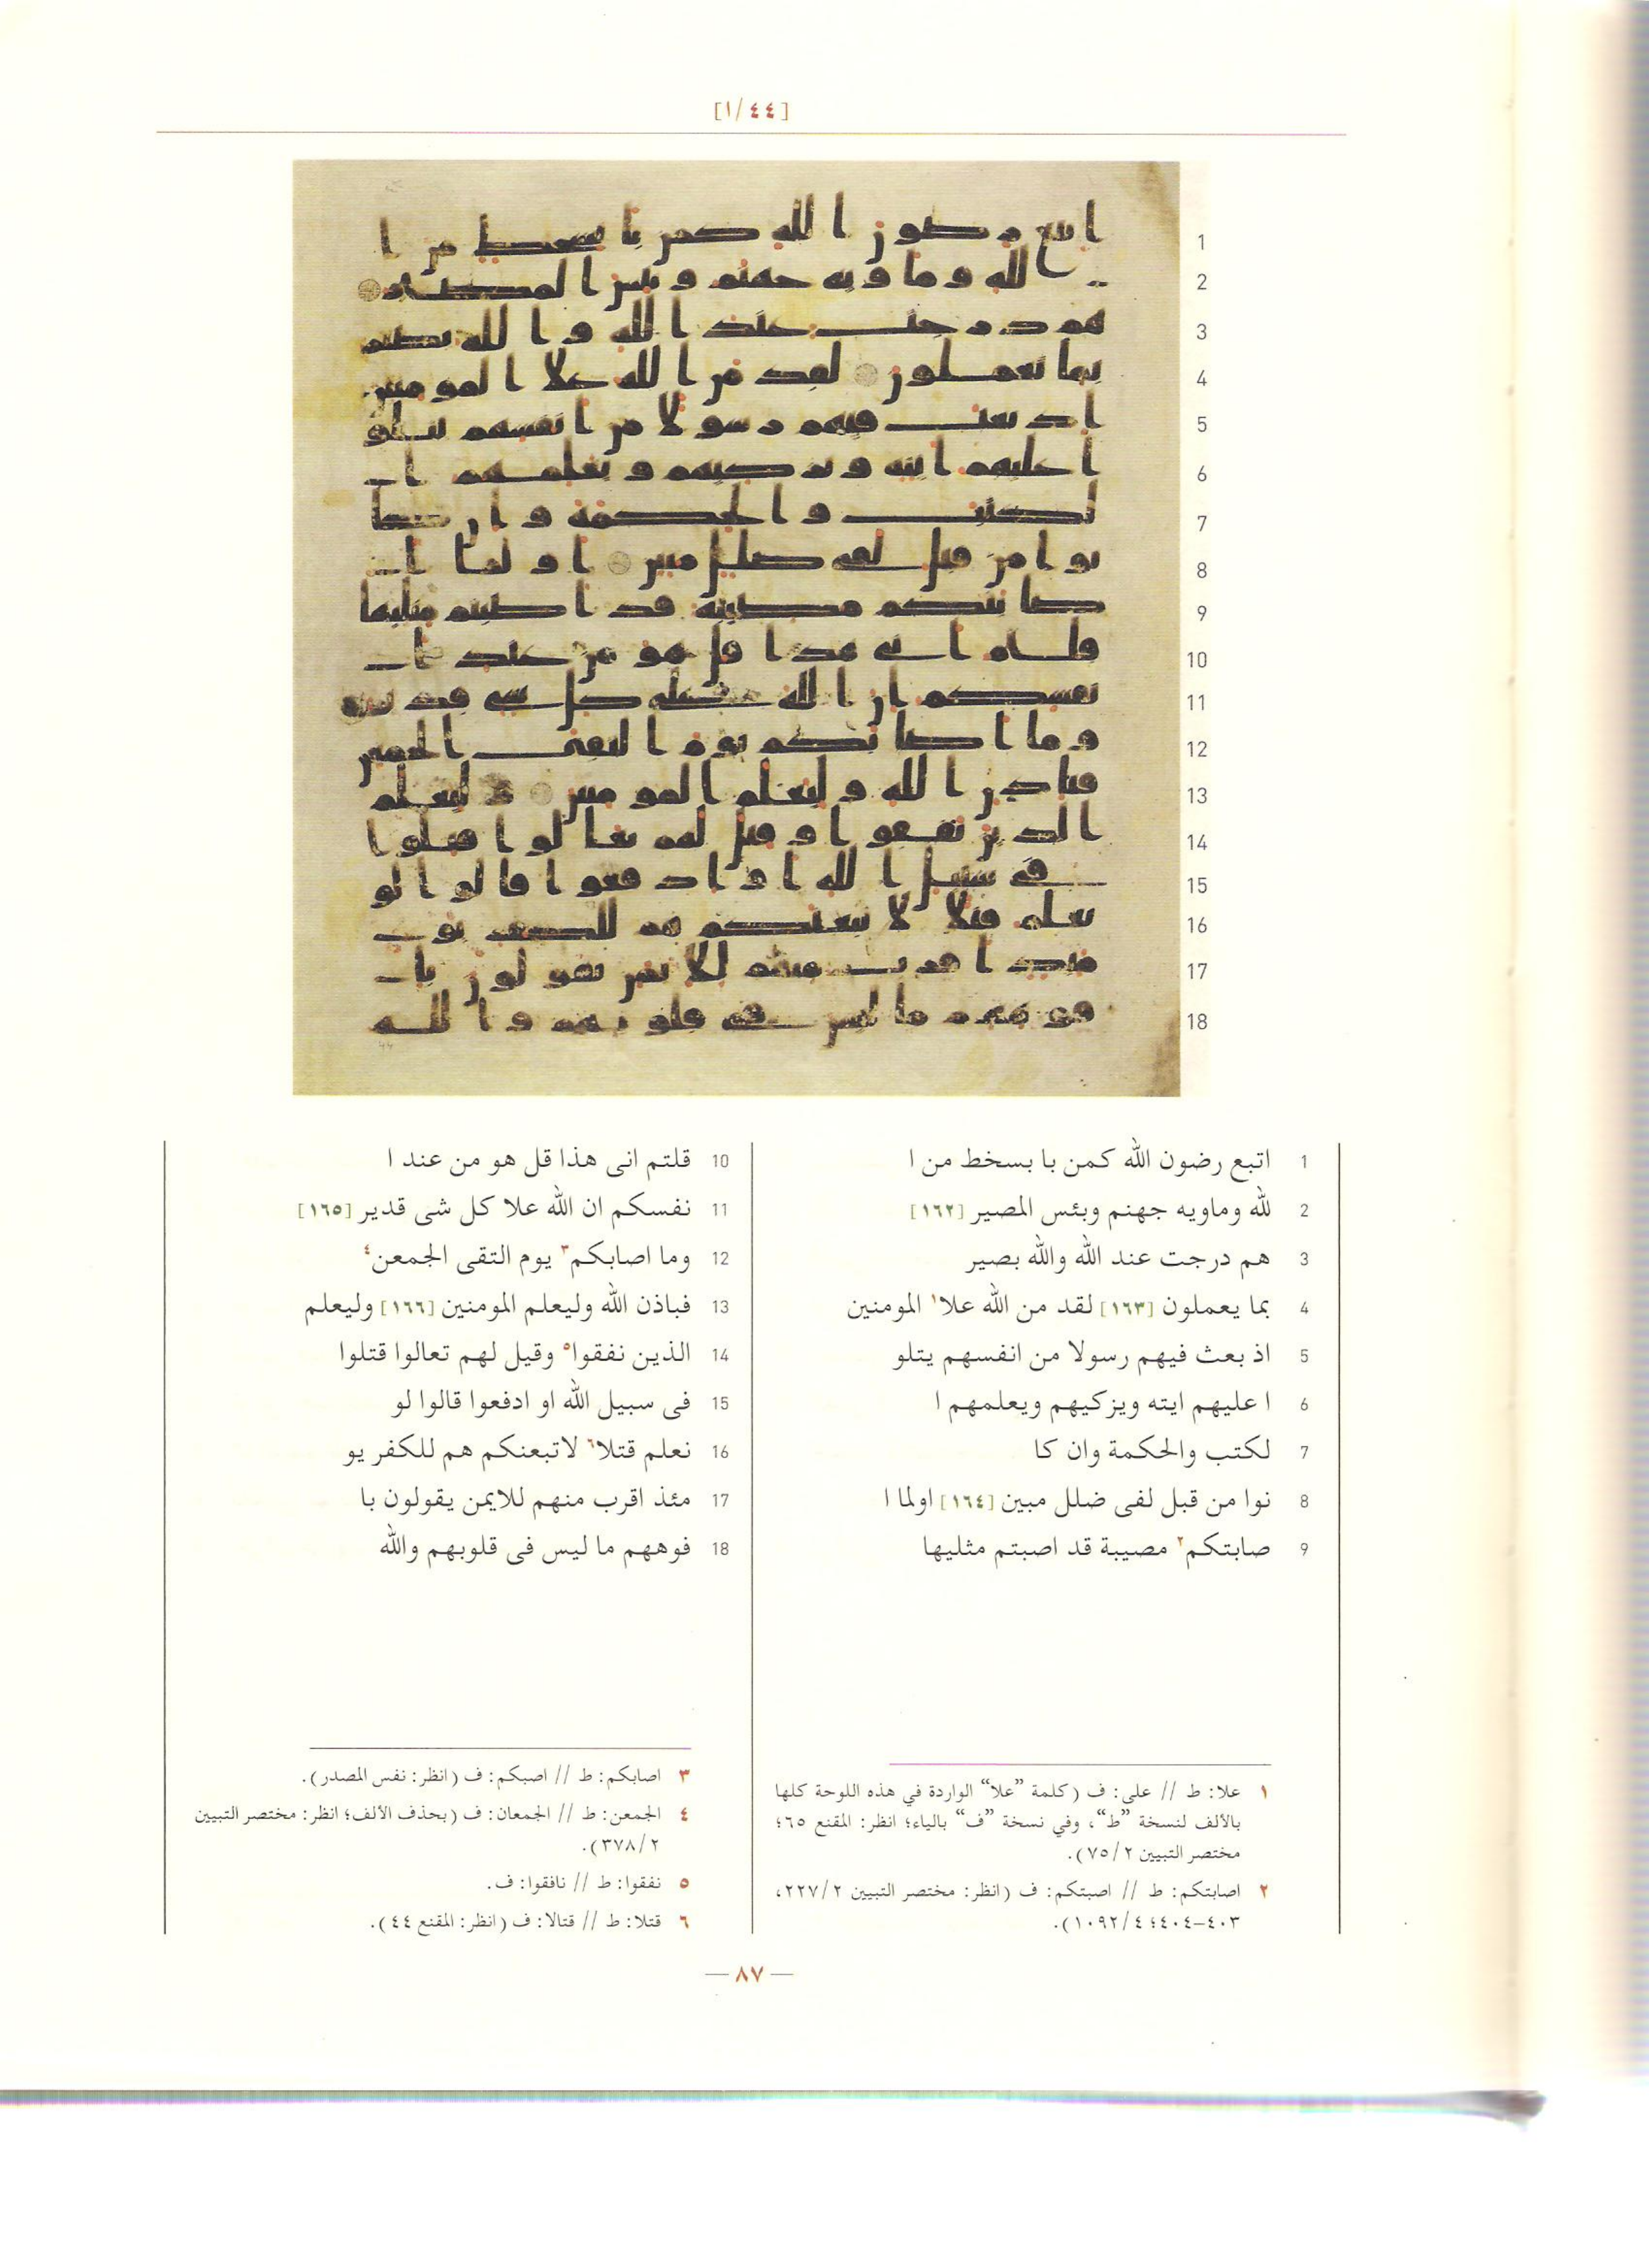 [١/٤٤]
1 اتبع رضون الله كمن با بسخط من ا
2 لله وماويه جهنم وبئس المصير [١٦٢]
3 هم درجت عند الله والله بصير
4 بما يعملون [١٦٣] لقد من الله علا١ المومنين
5 اذ بعث فيهم رسولا من انفسهم يتلو
6 ا عليهم ايته ويزكيهم ويعلمهم ا
7 لكتب والحكمة وان كا
8 نوا من قبل لفى ضلل مبين [١٦٤] اولما ا
9 صابتكم٢ مصيبة قد اصبتم مثليها
10 قلتم انى هذا قل هو من عند ا
11 نفسكم ان الله علا كل شى قدير [١٦٥]
12 وما اصابكم٣ يوم التقى الجمعن٤
13 فباذن الله وليعلم المومنين [١٦٦] وليعلم
14 الذين نفقوا٥ وقيل لهم تعالوا قتلوا
15 فى سبيل الله او ادفعوا قالوا لو
16 نعلم قتلا٦ لاتبعنكم هم للكفر يو
17 مئذ اقرب منهم للايمن يقولون با
18 فوههم ما ليس فى قلوبهم والله
١ علا: ط // على: ف (كلمة ”علا“ الواردة في هذه اللوحة كلها
بالألف لنسخة ”ط“، وفي نسخة ”ف“ بالياء؛ انظر: المقنع ٦٥؛
مختصر التبيين ٧٥/٢).
٢ اصابتكم: ط // اصبتكم: ف (انظر: مختصر التبيين ٢٢٧/٢،
٤٠٣-٤٠٤؛ ١٠٩٢/٤).
٣ اصابكم: ط // اصبكم: ف (انظر: نفس المصدر).
٤ الجمعن: ط // الجمعان: ف (بحذف الألف؛ انظر: مختصر التبيين
٣٧٨/٢).
٥ نفقوا: ط // نافقوا: ف.
٦ قتلا: ط // قتالا: ف (انظر: المقنع ٤٤).
— ٨٧ —